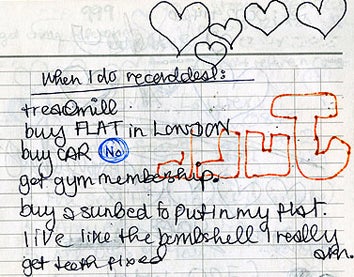 When I do recorddeal:
treadmill.
buy FLAT in LONDON.
buy CAR No
get gym membership.
buy a sunbed to put in my flat.
live like the bombshell I really
am.
get teeth fixed